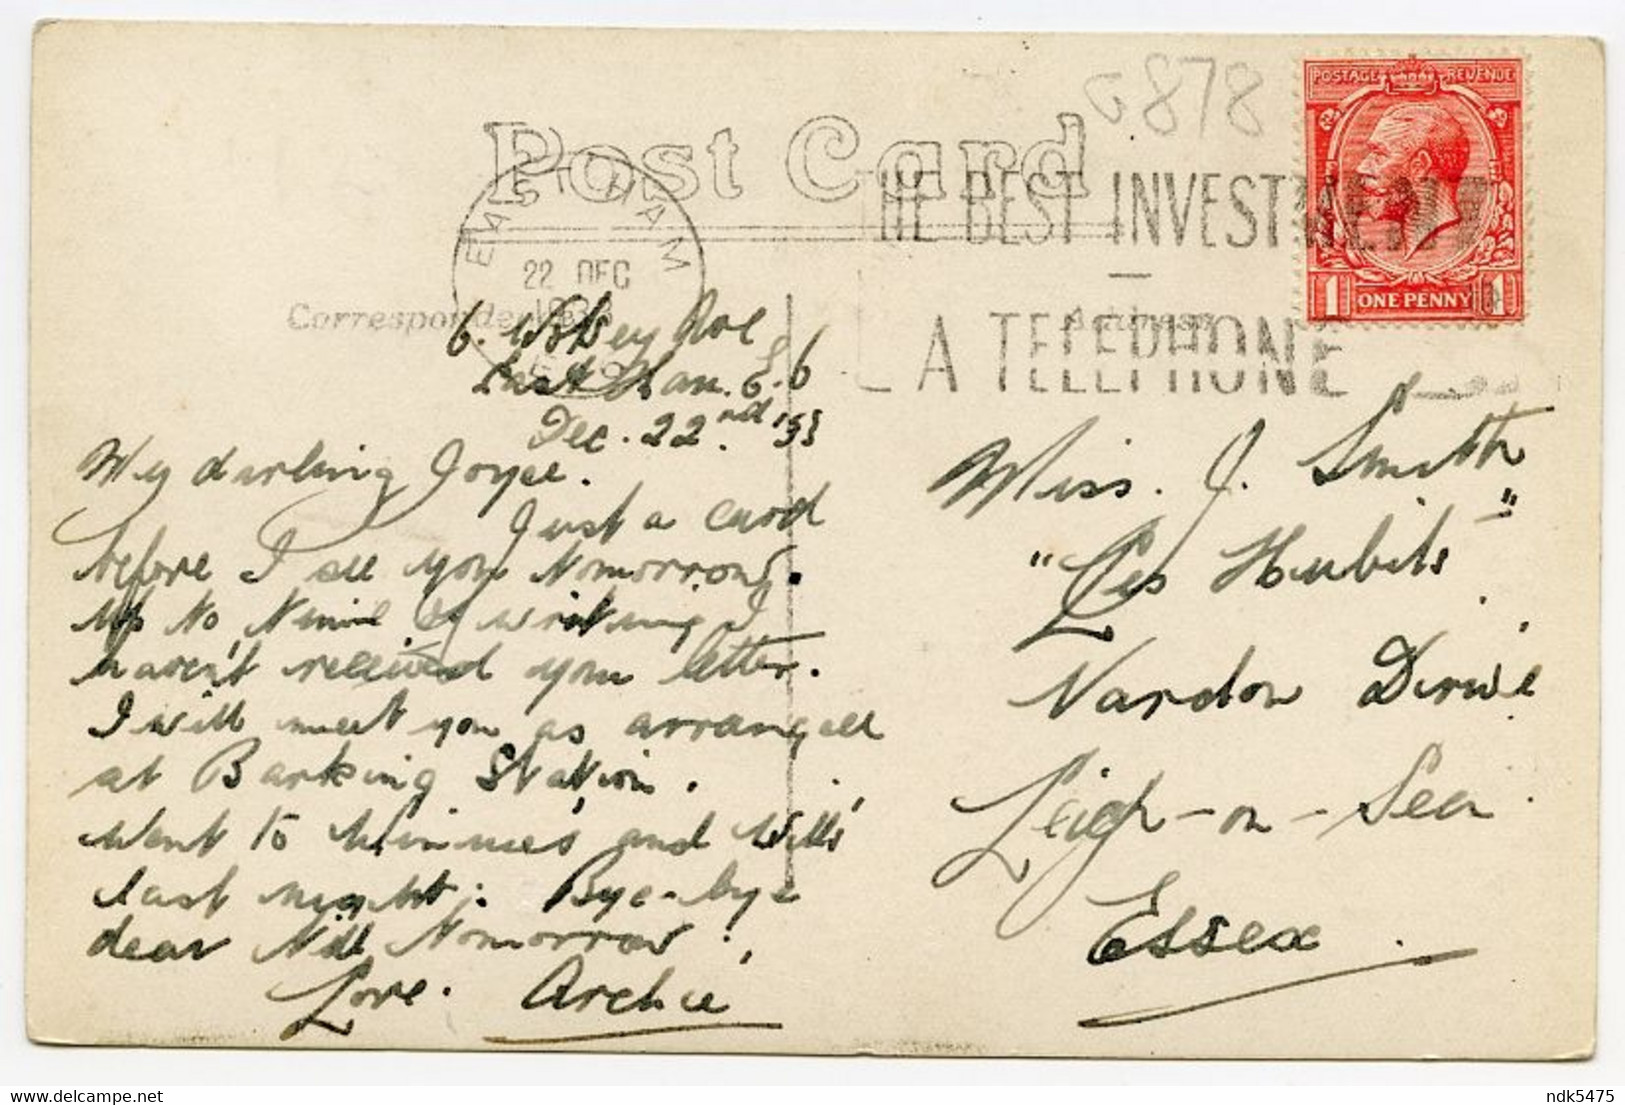 G878
POSTAGE REVENUE
1 ONE PENNY 1
Post Card
THE BEST INVESTMENT
IS
A TELEPHONE
EAST HAM
22 DEC
Correspondence
Address
6. Ave
East Ham. E.6
Dec. 22nd '33
My darling Joyce.
Just a card
before I see you Tomorrow.
Up To Time of writing I
haven't received your letter.
I will meet you as arranged
at Barking Station.
Went To Minnie's and Will's
last night. Bye-bye
dear Till Tomorrow!
Love. Archie
Miss. J. Smith
"Les "
Drive
Leigh-on-Sea
Essex.
ndk5475